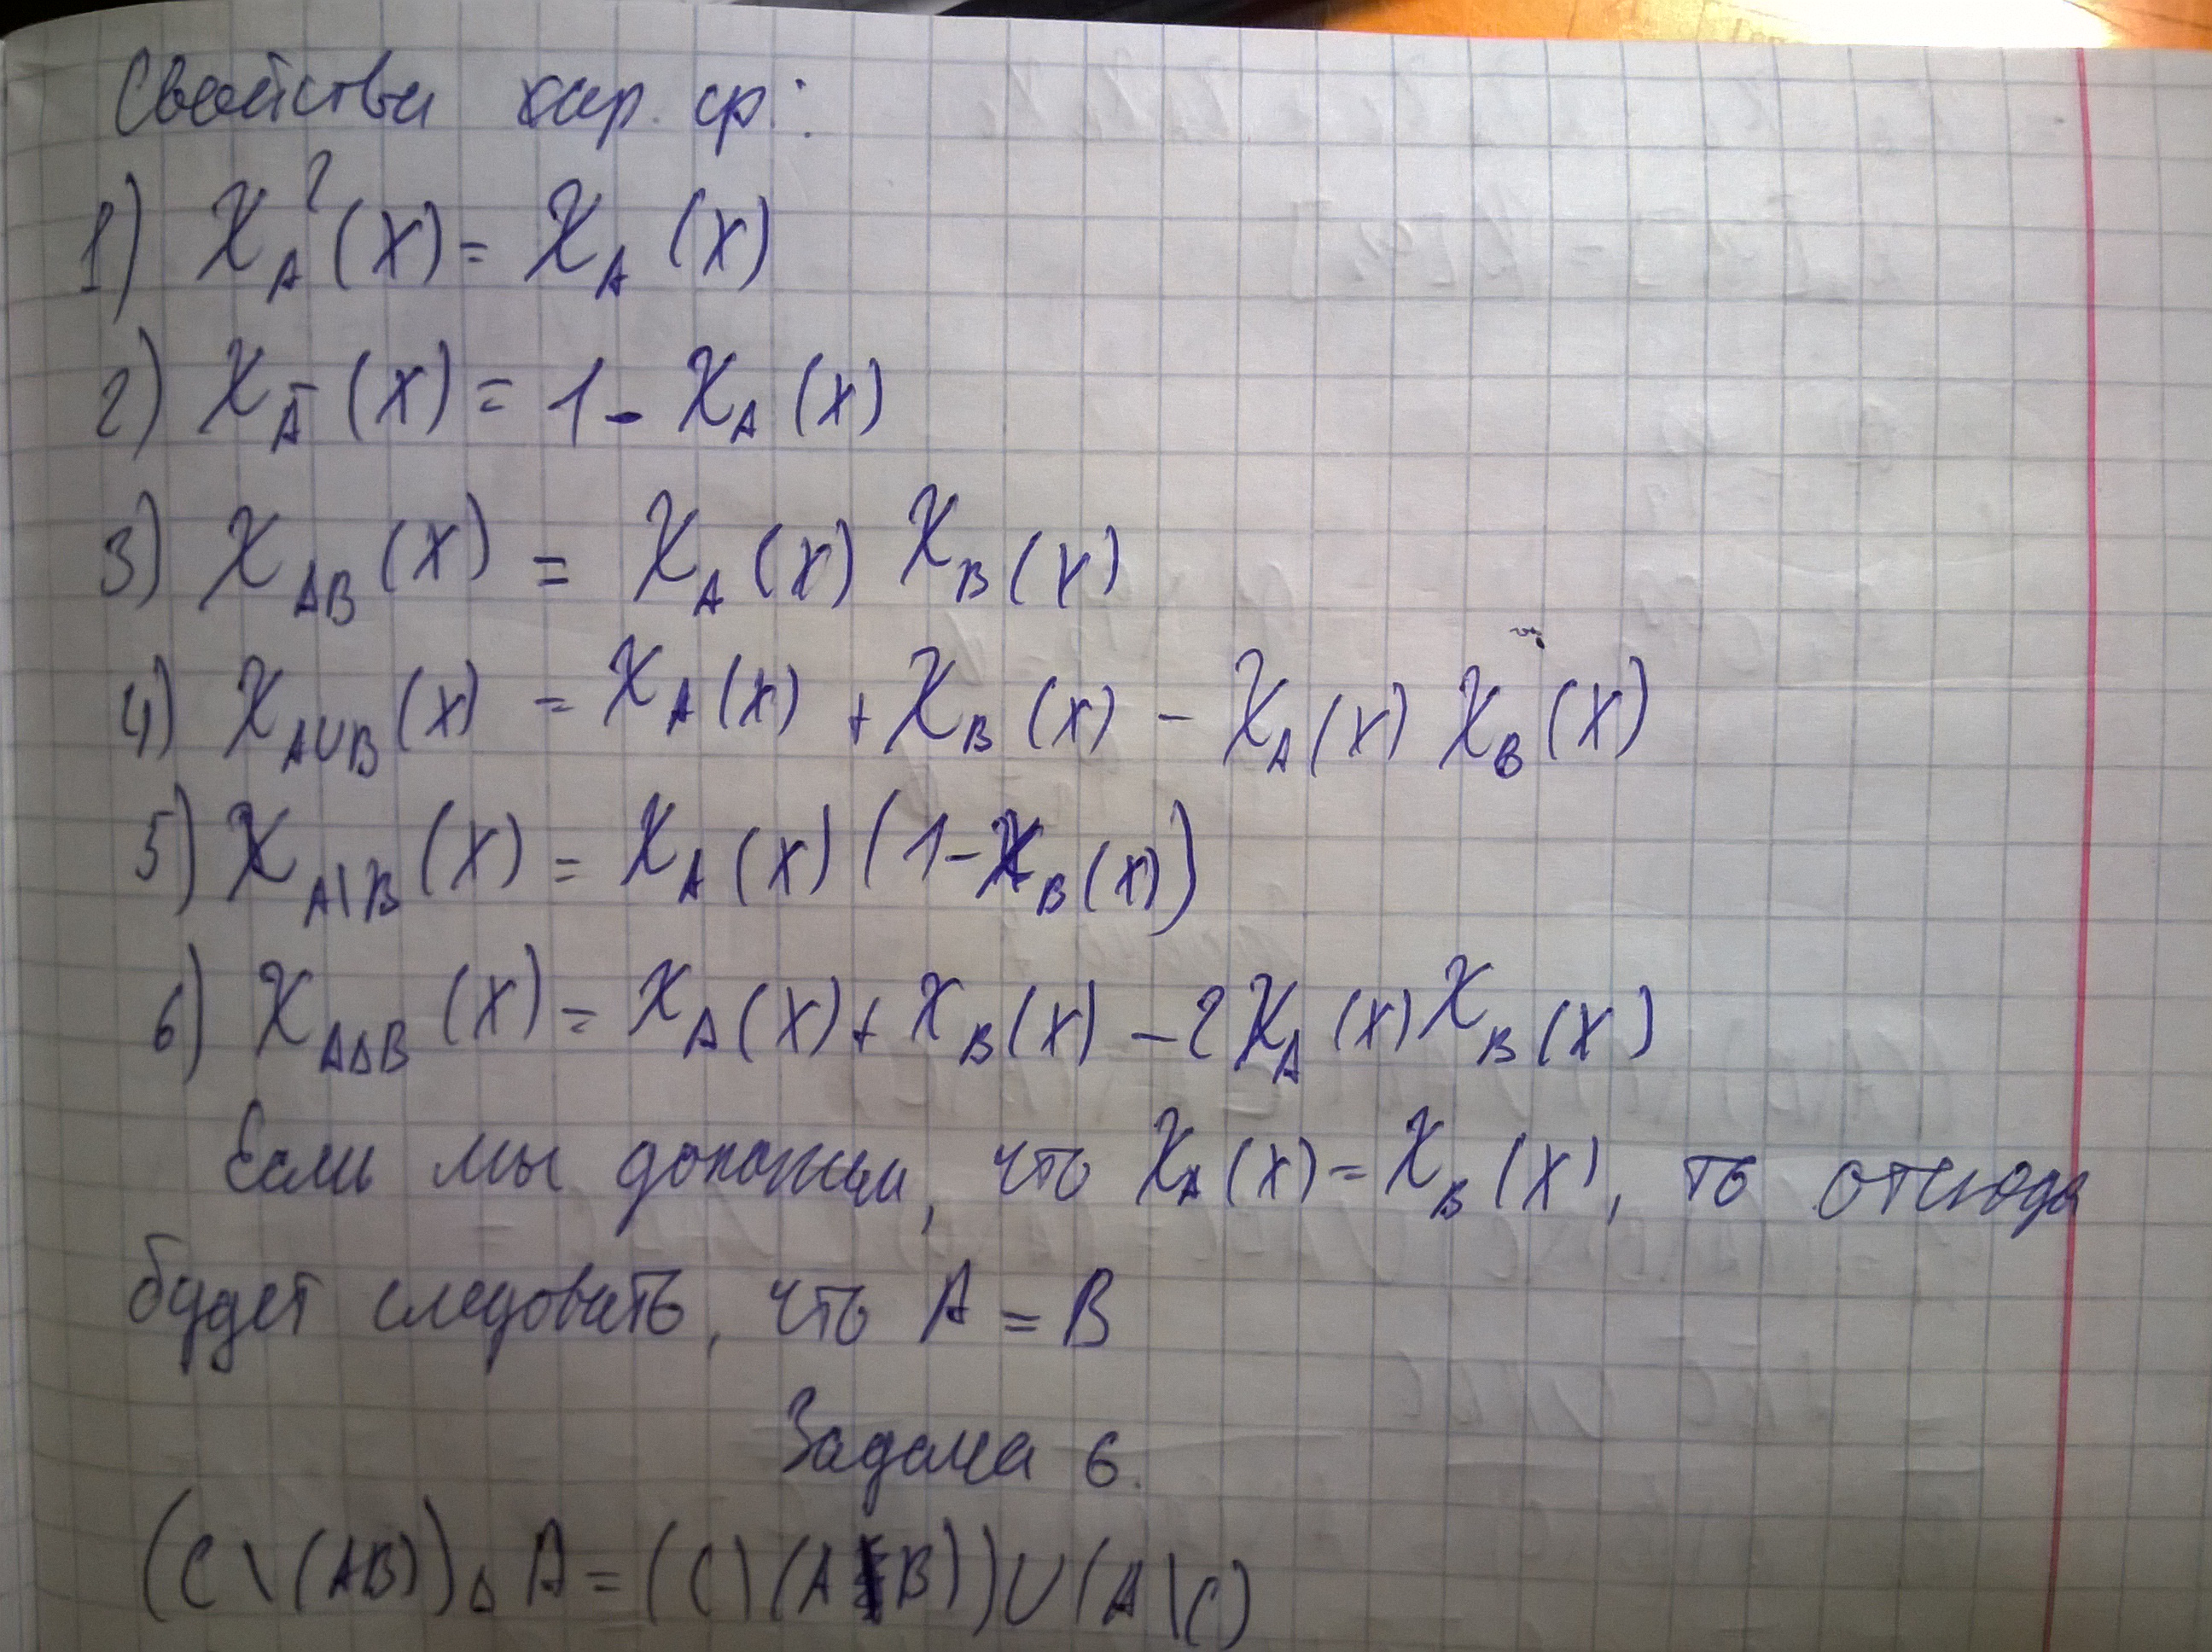 Свойства хар. ф.:
1) χ_A²(x) = χ_A(x)
2) χ_Ā(x) = 1 - χ_A(x)
3) χ_AB(x) = χ_A(x) χ_B(x)
4) χ_A∪B(x) = χ_A(x) + χ_B(x) - χ_A(x) χ_B(x)
5) χ_A\B(x) = χ_A(x) (1 - χ_B(x))
6) χ_AΔB(x) = χ_A(x) + χ_B(x) - 2χ_A(x) χ_B(x)
Если мы докажем, что χ_A(x) = χ_B(x), то отсюда
будет следовать, что A = B
Задача 6.
(C \ (AB)) Δ A = (C \ (A B)) ∪ (A \ C)